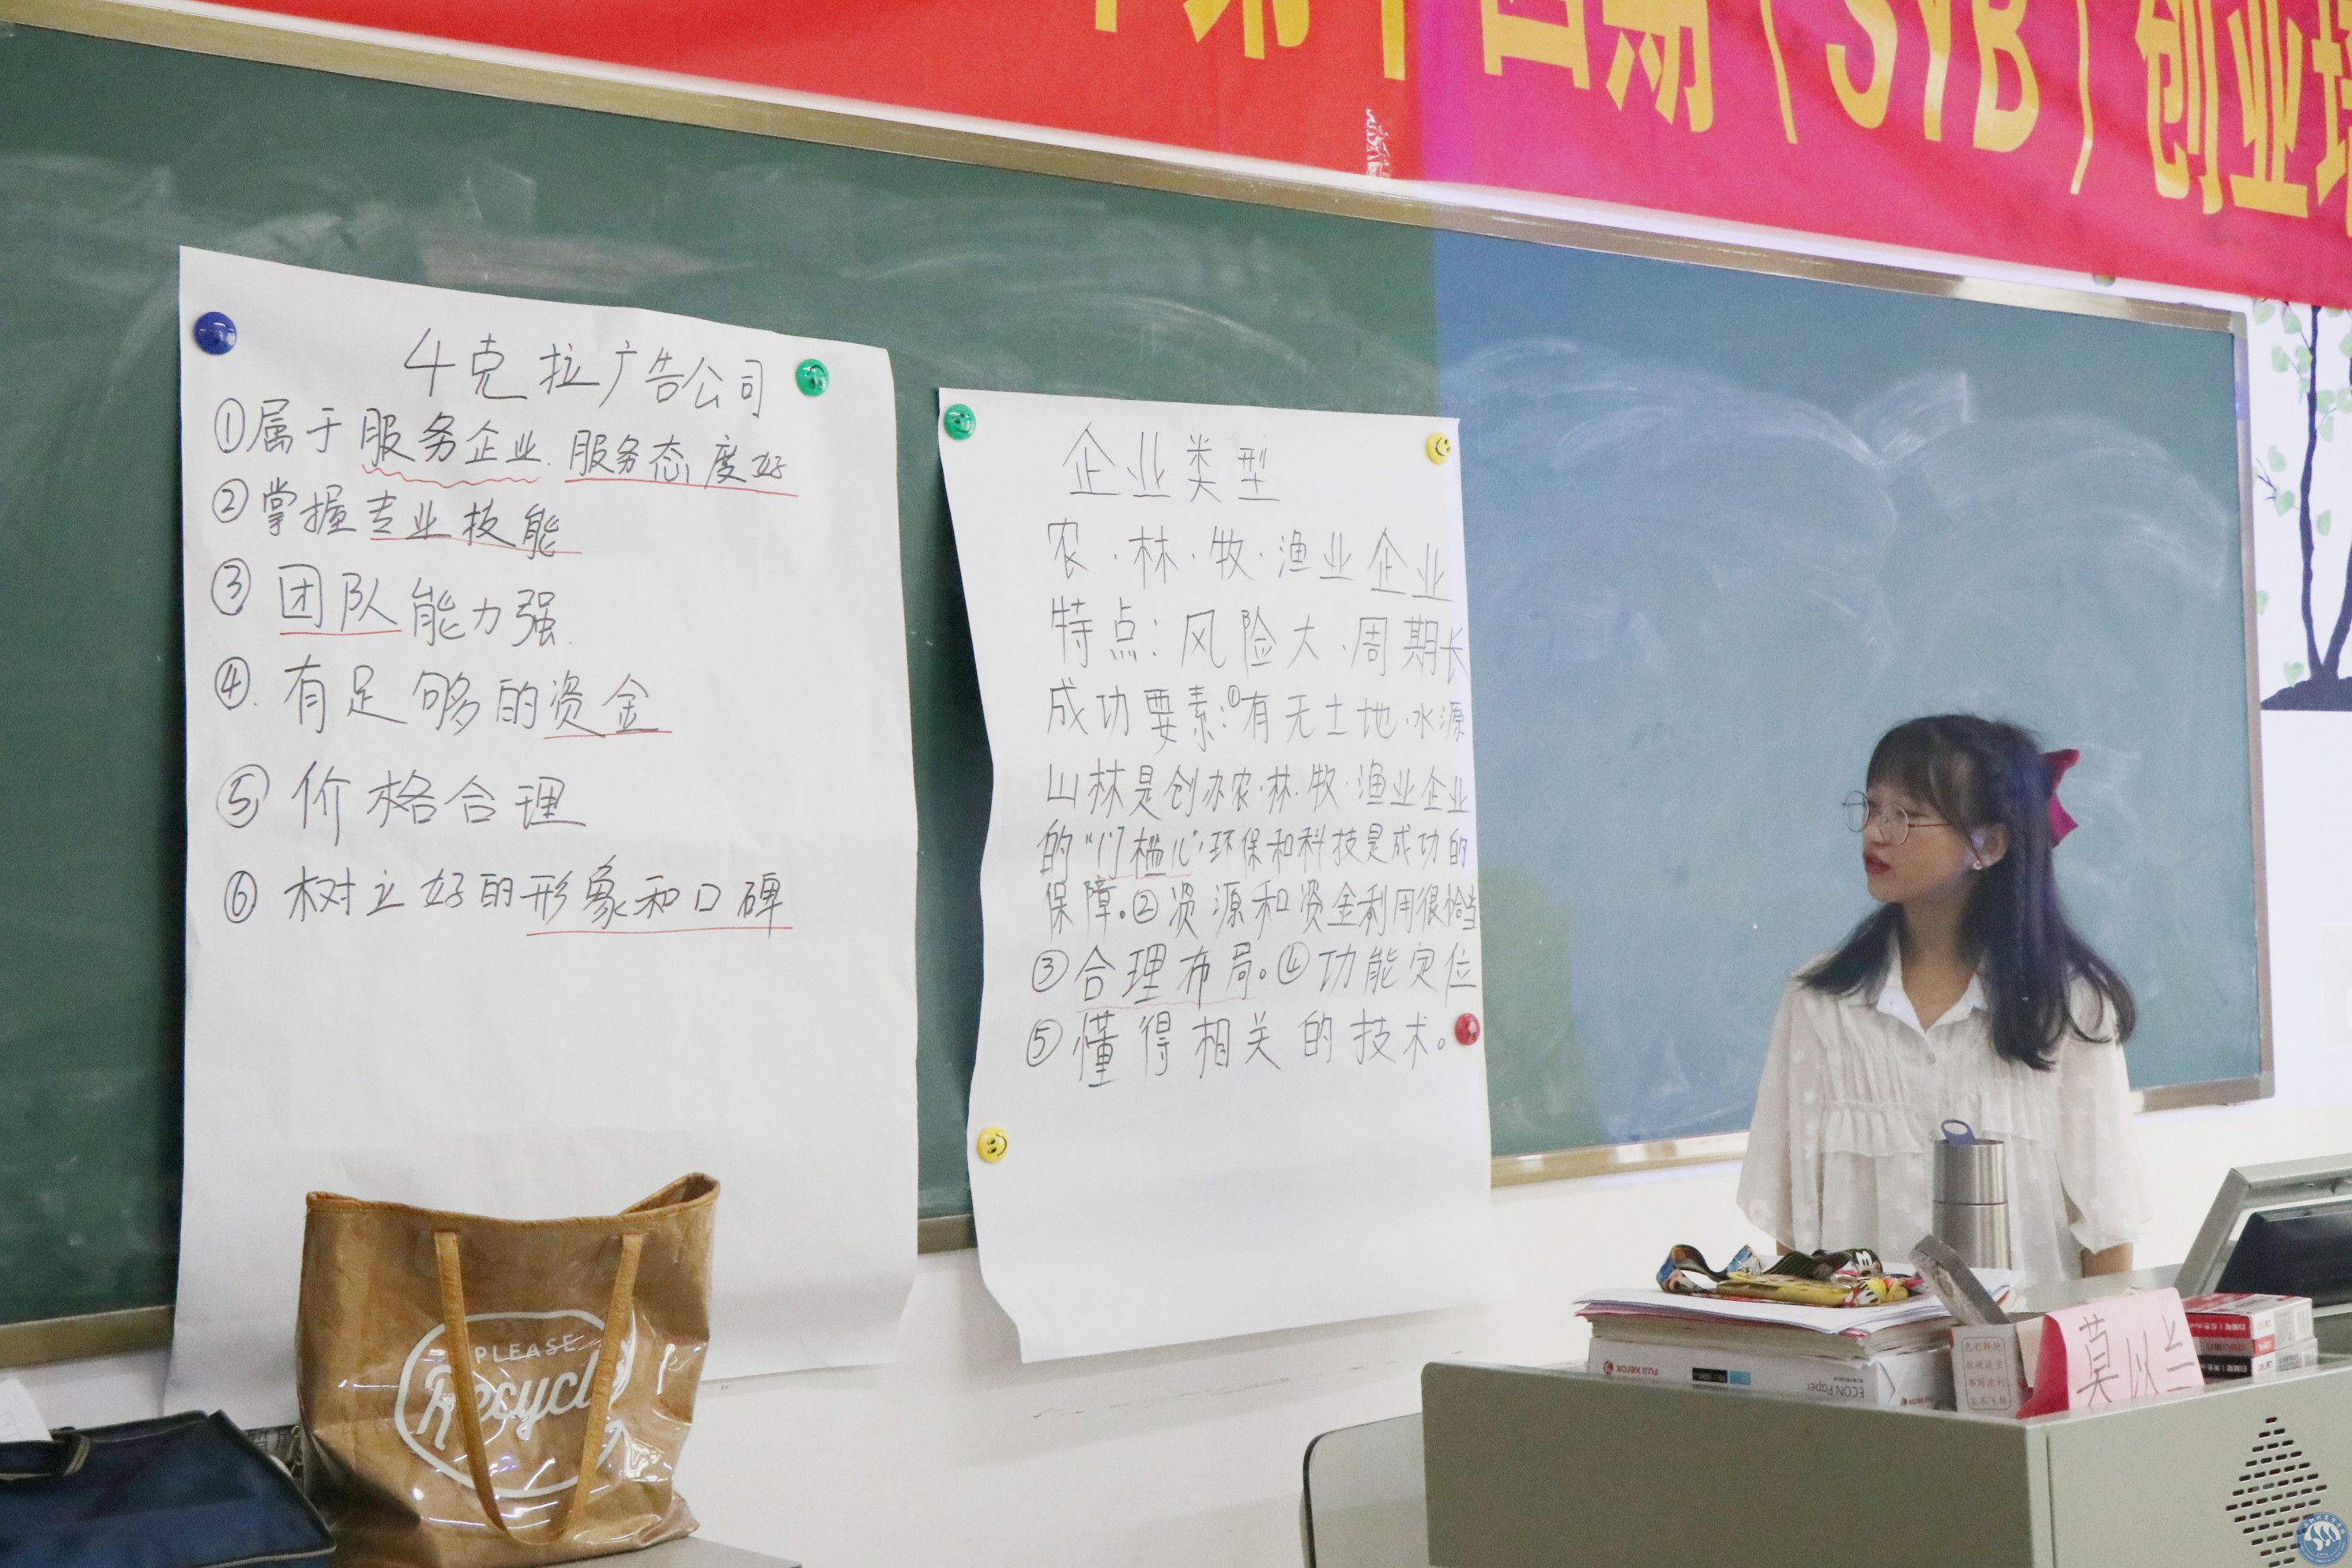 第十四期（SYB）创业培
4克拉广告公司
①属于服务企业.服务态度好
②掌握专业技能
③团队能力强.
④.有足够的资金
⑤价格合理
⑥树立好的形象和口碑
企业类型
农·林·牧·渔业企业
特点：风险大·周期长
成功要素：①有无土地·水源
山林是创办农·林·牧·渔业企业
的“门槛儿”·环保和科技是成功的
保障。②资源和资金利用很恰当
③合理布局。④功能定位
⑤懂得相关的技术。
PLEASE
Recycle
FUJI XEROX
ECON Paper
莫似兰